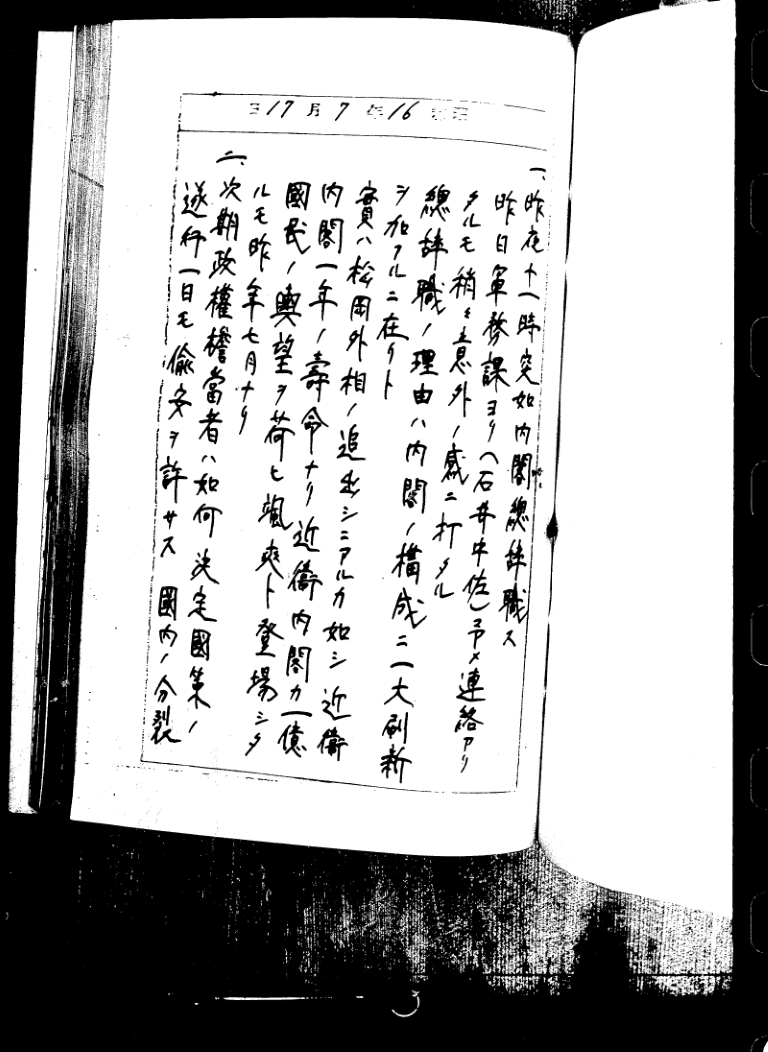 昭和16年7月17日
一、昨夜十一時突如内閣總辞職ス
昨日軍務課ヨリ(石井中佐)予メ連絡アリ
タルモ稍々意外ノ感ニ打タル
總辞職ノ理由ハ内閣ノ構成ニ一大刷新
ヲ加フルニ在リト
實ハ松岡外相ノ追出シニアルカ如シ近衛
内閣一年ノ壽命ナリ近衛内閣カ一億
國民ノ輿望ヲ荷ヒ颯爽ト登場シタ
ルモ昨年七月ナリ
二、次期政權擔當者ハ如何決定國策ノ
遂行一日モ偸安ヲ許サス 國内ノ分裂